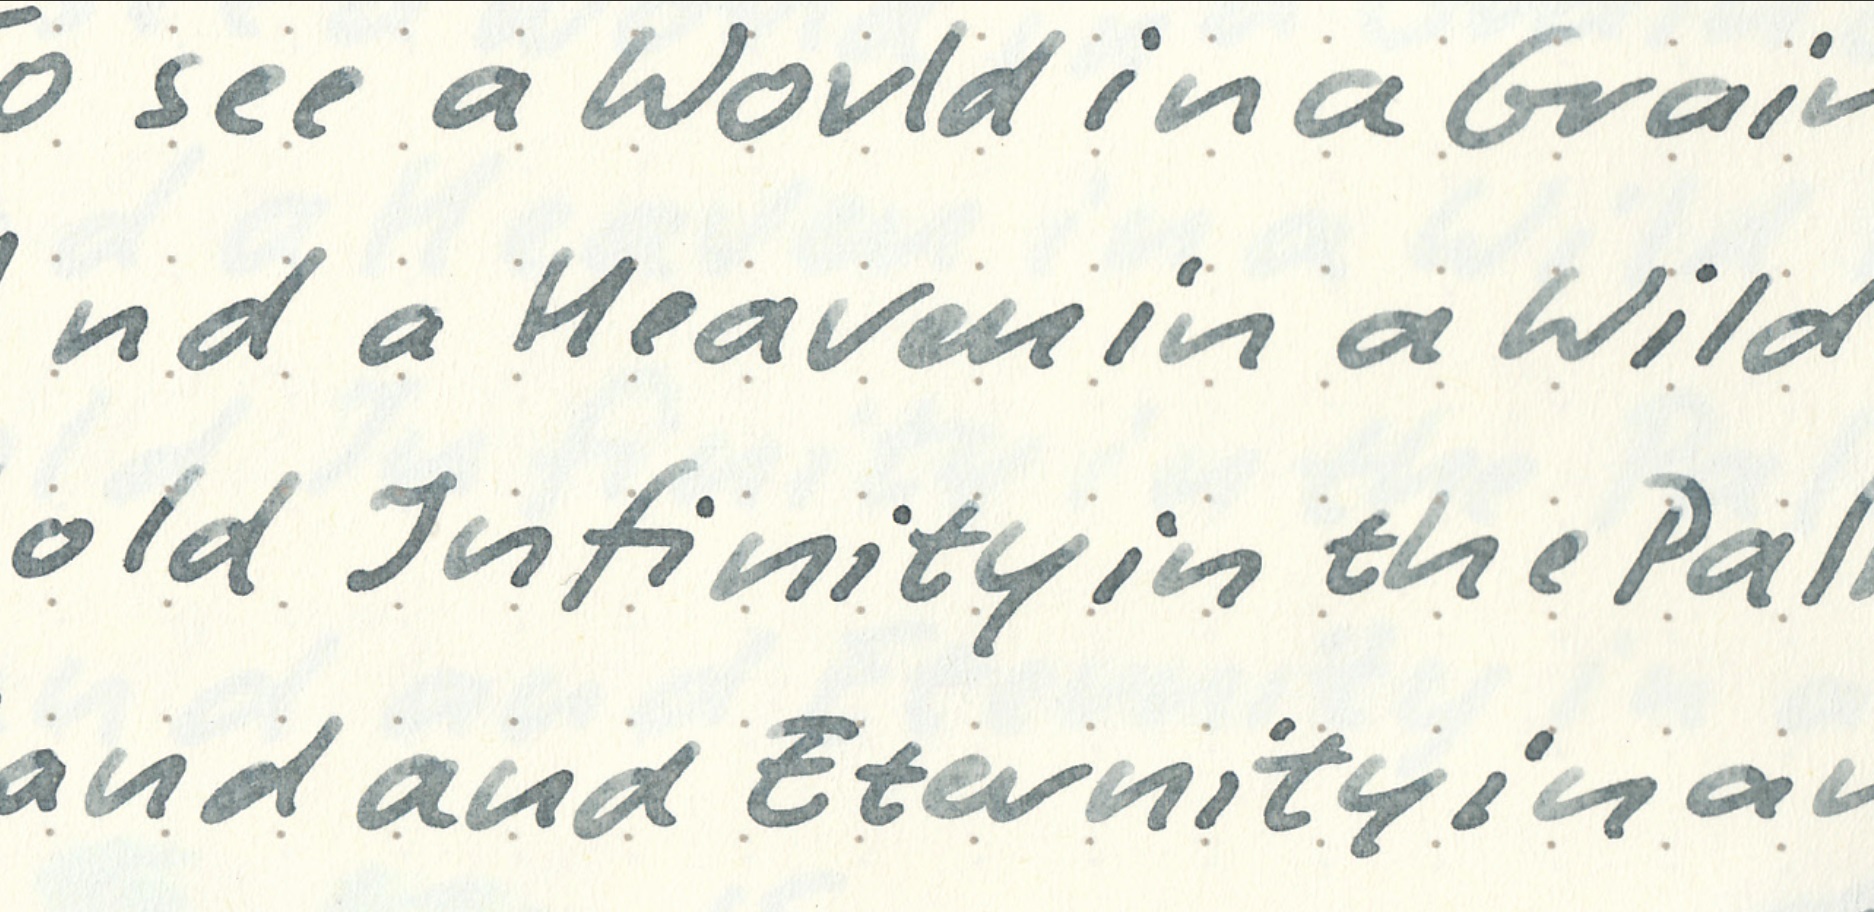 To see a World in a Grain
nd a Heaven in a Wild
old Infinity in the Pal
and and Eternity in an